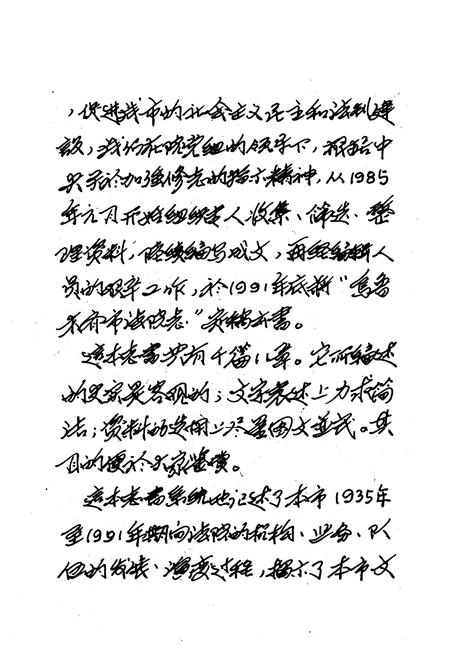 ，促进我市的社会主义民主和法制建
设，我们在院党组的领导下，根据中
央关于加强修志的指示精神，从1985
年元月开始组织专人收集、筛选、整
理资料，陆续编写成文，再经编辑人
员的艰辛工作，於1991年底将“乌鲁
木齐市法院志”定稿成书。
这本志书共有十篇 章。它所编述
的史实是客观的；文字表述上力求简
洁；资料的选用上尽量图文並茂。其
目的便於大家鉴赏。
这本志书系统地记述了本市1935年
至1991年期间法院的机构、业务、队
伍的发展、演变过程，揭示了本市文